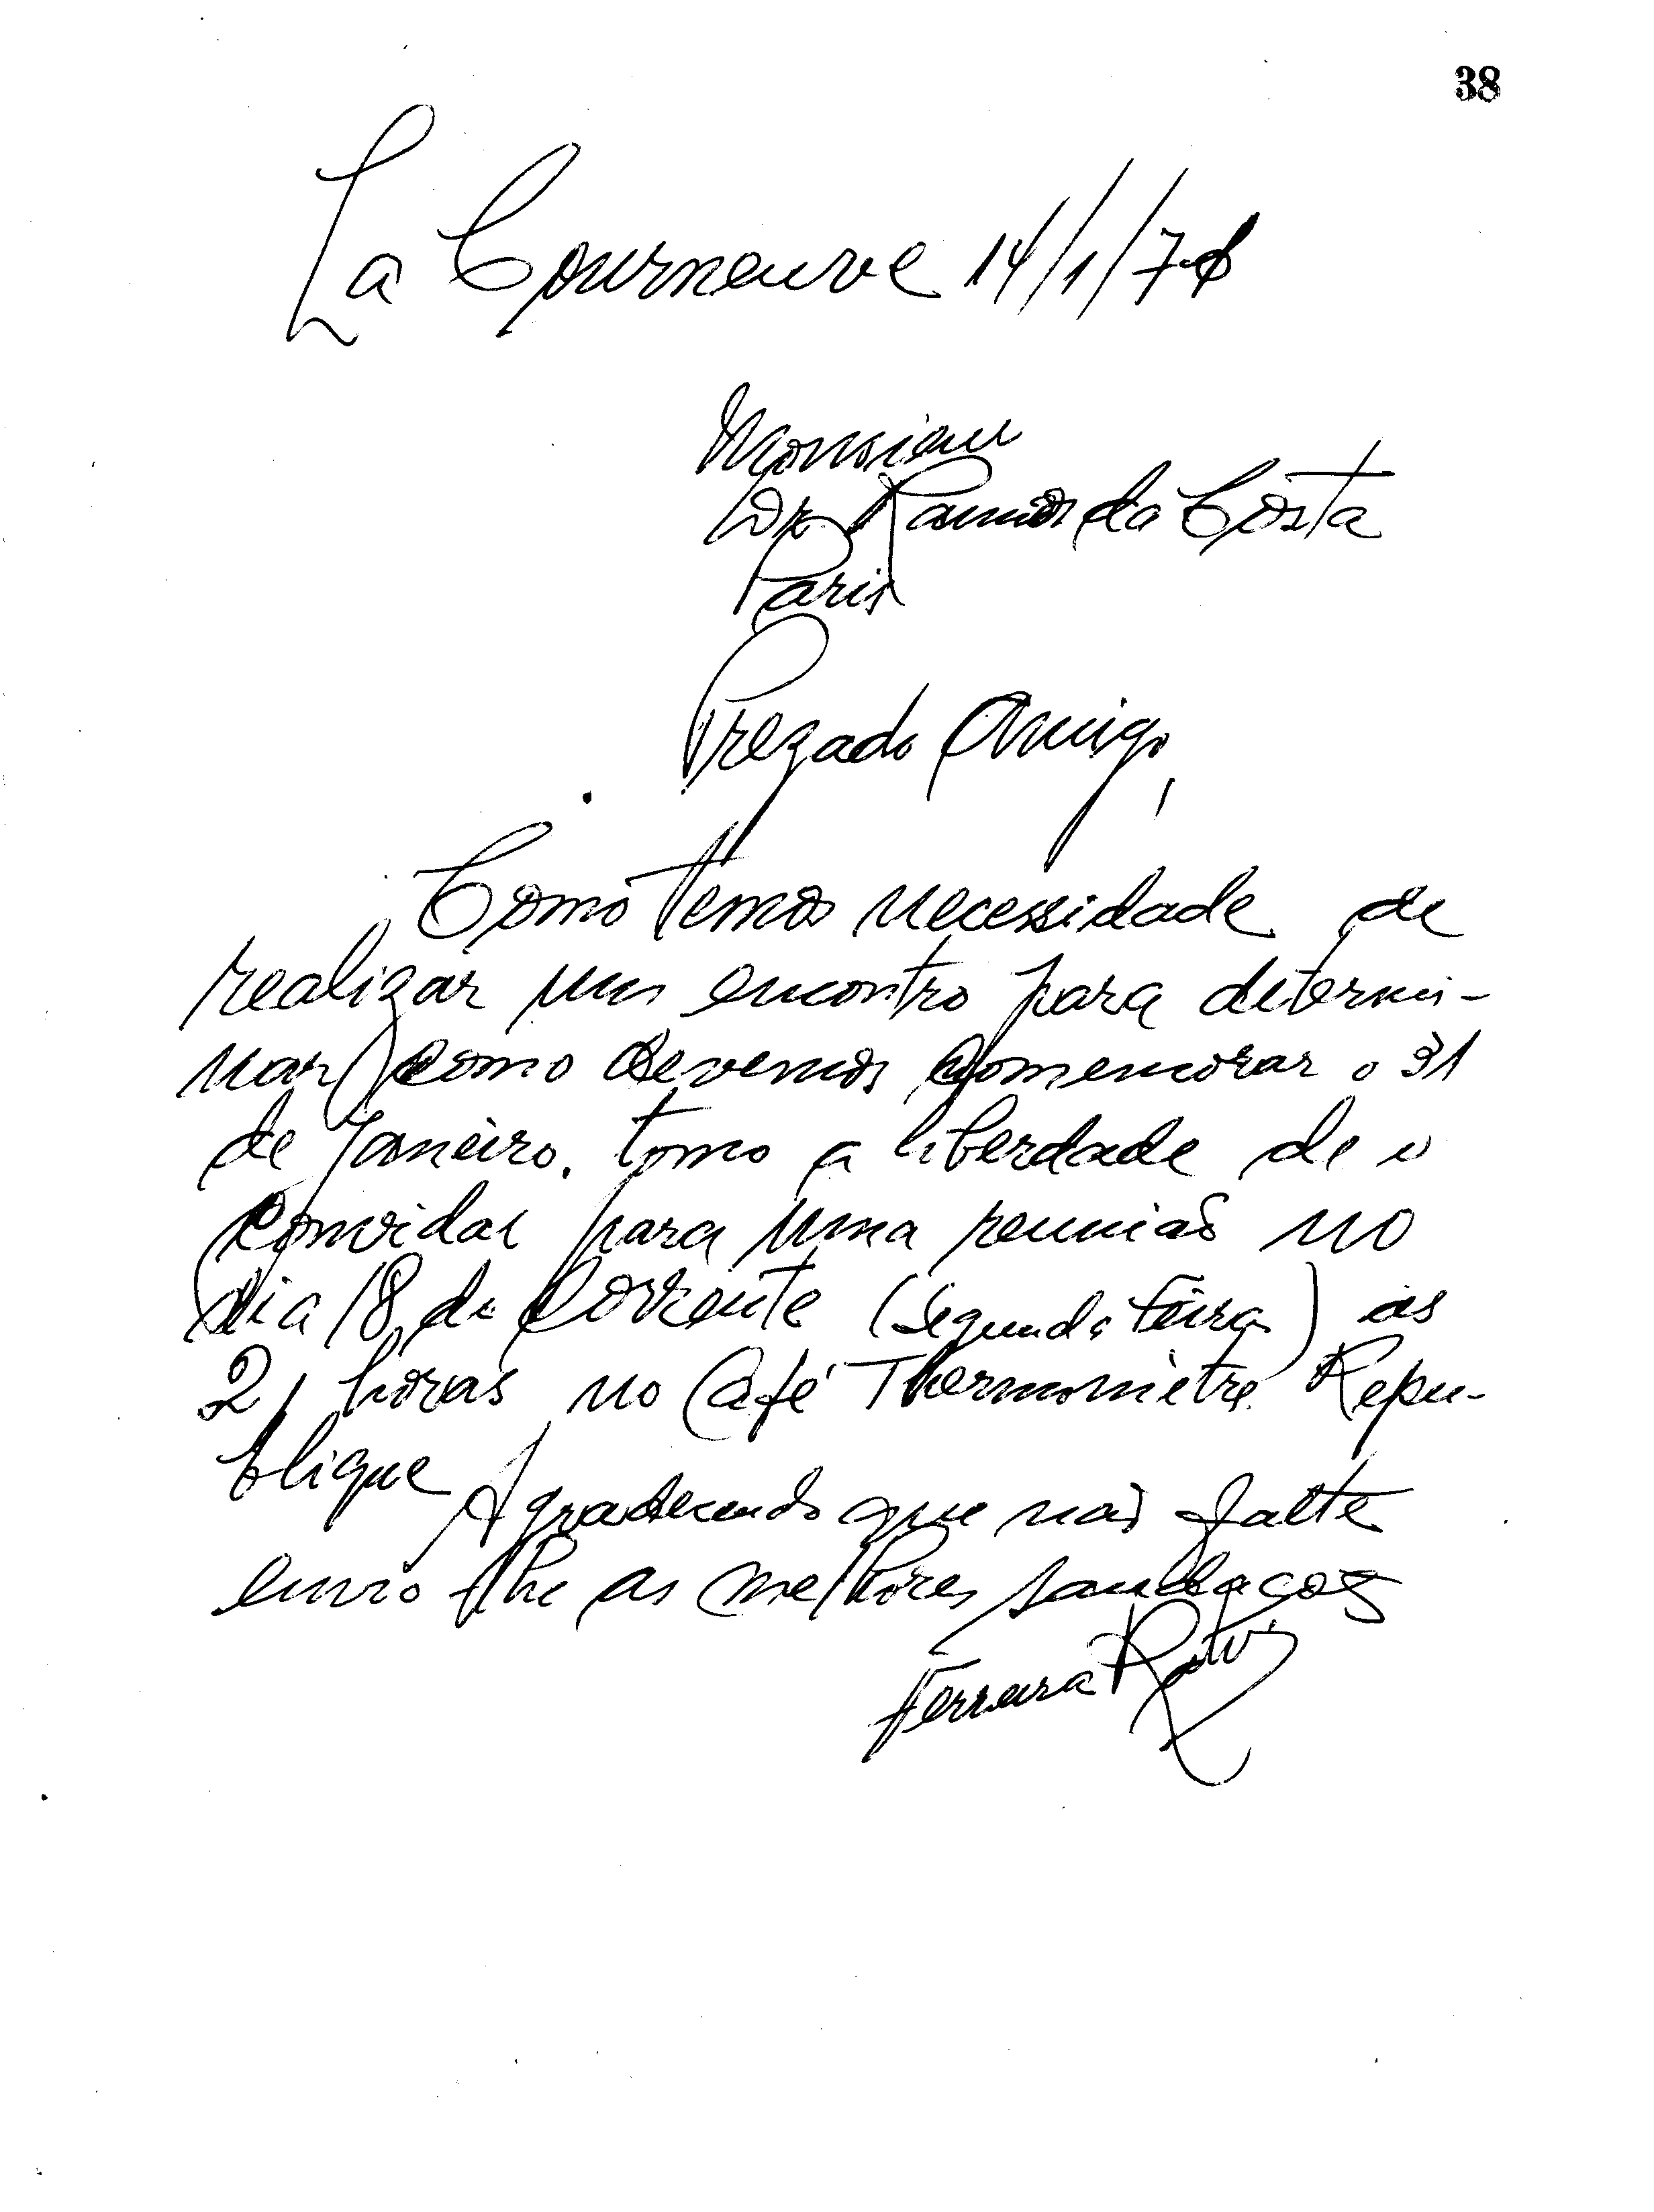 38
La Courneuve 14/1/71
Monsieur
Dr. Ramos da Costa
Paris
Prezado Amigo,
Como temos necessidade de
realizar um encontro para determi-
nar como devemos comemorar o 31
de Janeiro. tomo a liberdade de o
convidar para uma reunião no
dia 18 do corrente (Segunda Feira) ás
21 horas no Café Thermomètre Repu-
blique
Agradecendo que não falte
envio-lhe as melhores saudações
Ferreira